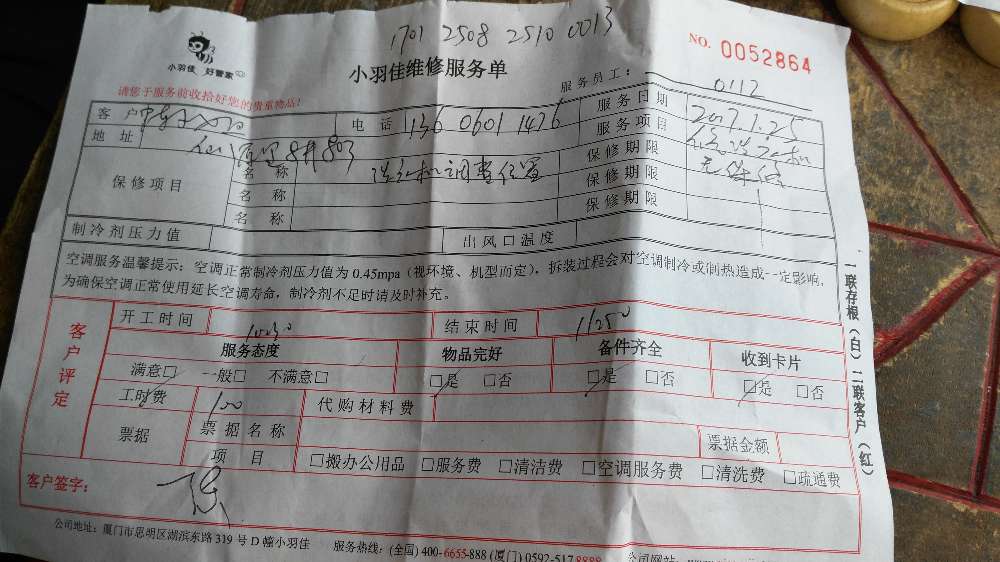 1701 2508 2510 0013
小羽佳 好管家
小羽佳维修服务单
NO. 0052864
请您于服务前收拾好您的贵重物品!
服务员工: 0112
客 户 电 话 136 0601 1476 服务日期 2017.1.25
地 址 服务项目
保修项目 名 称 洗衣机调整位置 保修期限 无保
名 称 保修期限
名 称 保修期限
制冷剂压力值 出风口温度
空调服务温馨提示: 空调正常制冷剂压力值为 0.45mpa (视环境、机型而定), 拆装过程会对空调制冷或制热造成一定影响,
为确保空调正常使用延长空调寿命, 制冷剂不足时请及时补充。
客户评定
开工时间 结束时间
服务态度 物品完好 备件齐全 收到卡片
满意□ 一般□ 不满意□ □是 □否 □是 □否 □是 □否
工时费 100 代购材料费
票据 票据名称 票据金额
项 目 □搬办公用品 □服务费 □清洁费 □空调服务费 □清洗费 □疏通费
客户签字:
公司地址: 厦门市思明区湖滨东路 319 号 D 幢小羽佳 服务热线: (全国) 400-6655-888 (厦门) 0592-517 8888
一联存根(白) 二联客户(红)